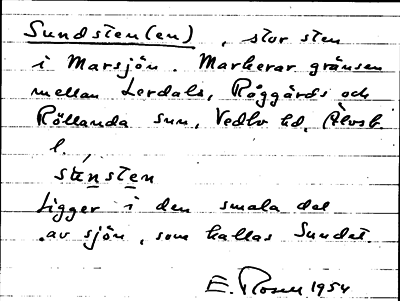 Sundsten(en), stor sten
i Marsjön. Markerar gränsen
mellan Lerdals, Röggärds och
Röllanda sun, Vedbo hd, Älvsb.
l.
súnsten
Ligger i den smala del
av sjön, som kallas Sundet.
E. Rosen 1954